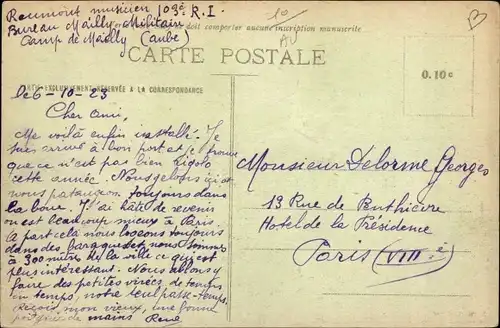 Reumont musicien 109e R.I.
Bureau Mailly Militaire
Camp de Mailly (Aube)
doit comporter aucune inscription manuscrite
10
AU
B
CARTE POSTALE
0.10 c
PARTIE EXCLUSIVEMENT RÉSERVÉE A LA CORRESPONDANCE
Le 6-10-23
Cher ami,
Me voilà enfin installé. Je
suis arrivé à bon port et je trouve
que ce n'est pas bien rigolo
cette année. Nous gelons ici et
nous pataugeons toujours dans
la boue. J'ai hâte de revenir
on est beaucoup mieux à Paris
A part cela nous logeons toujours
dans des baraques et nous sommes
à 300 mètres de la ville ce qui est
plus intéressant. Nous allons y
faire des petites virées de temps
en temps, notre seul passe-temps.
Reçois, mon vieux, une bonne
poignée de mains René
Monsieur Delorme Georges
13 Rue de Penthièvre
Hotel de la Présidence
Paris (VIIIe)